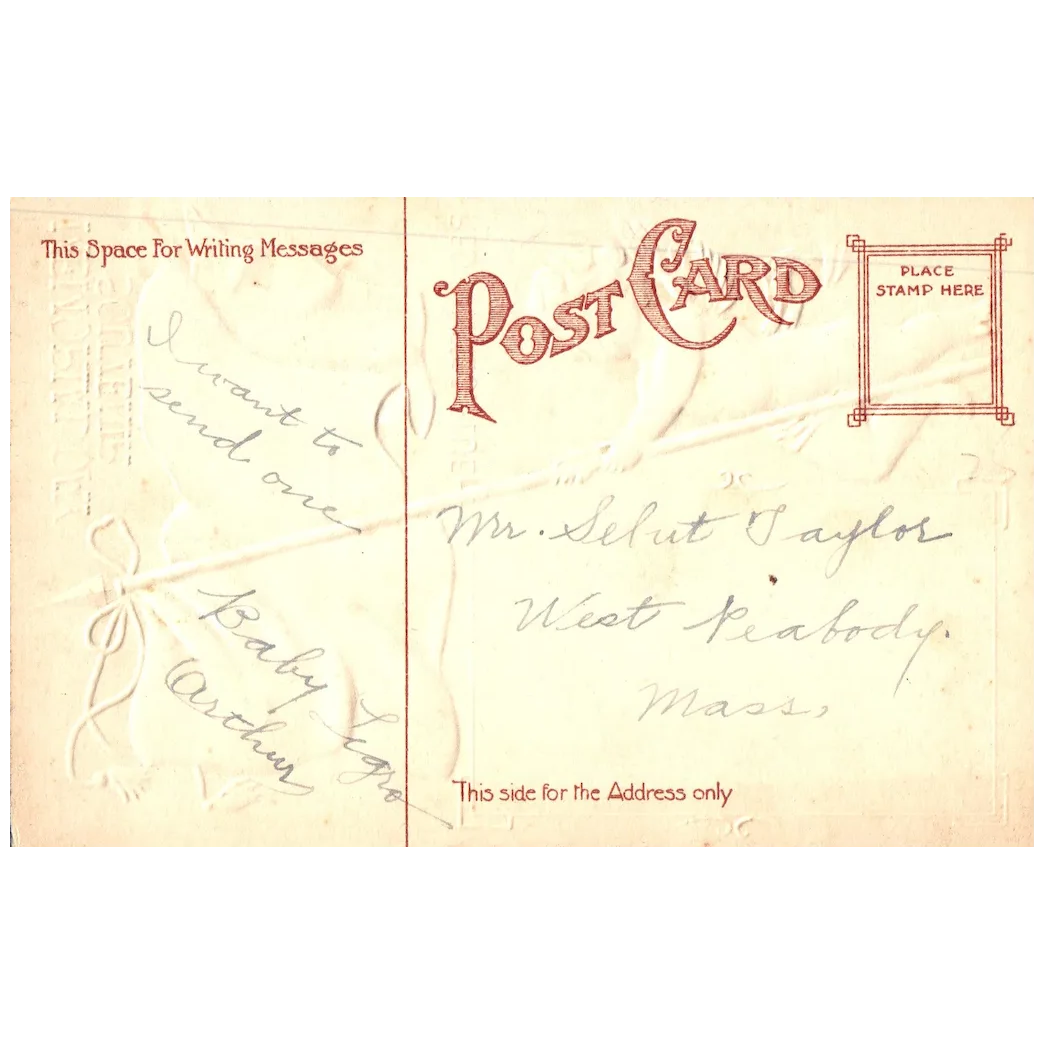 This Space For Writing Messages
POST CARD
PLACE
STAMP HERE
I want to
send one
Baby Legro
Arthur
Mr. Selut Taylor
West Peabody.
Mass,
This side for the Address only